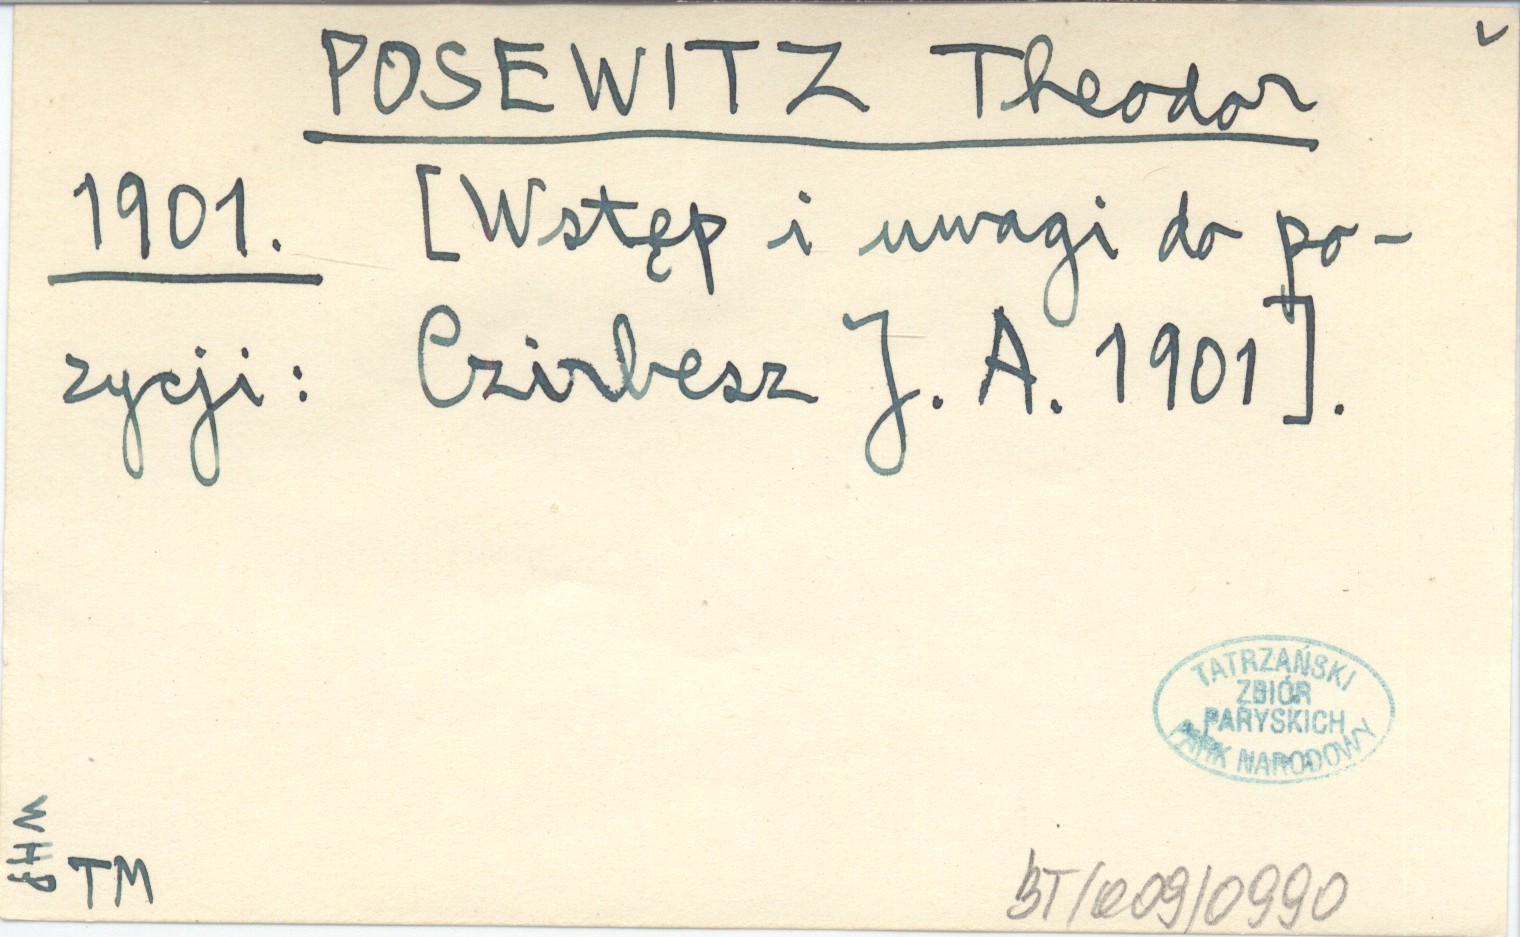 POSEWITZ Theodor
1901. [Wstęp i uwagi do po-
zycji: Czirbesz J. A. 1901].
TATRZAŃSKI
ZBIÓR
PARYSKICH
PARK NARODOWY
WHP
TM